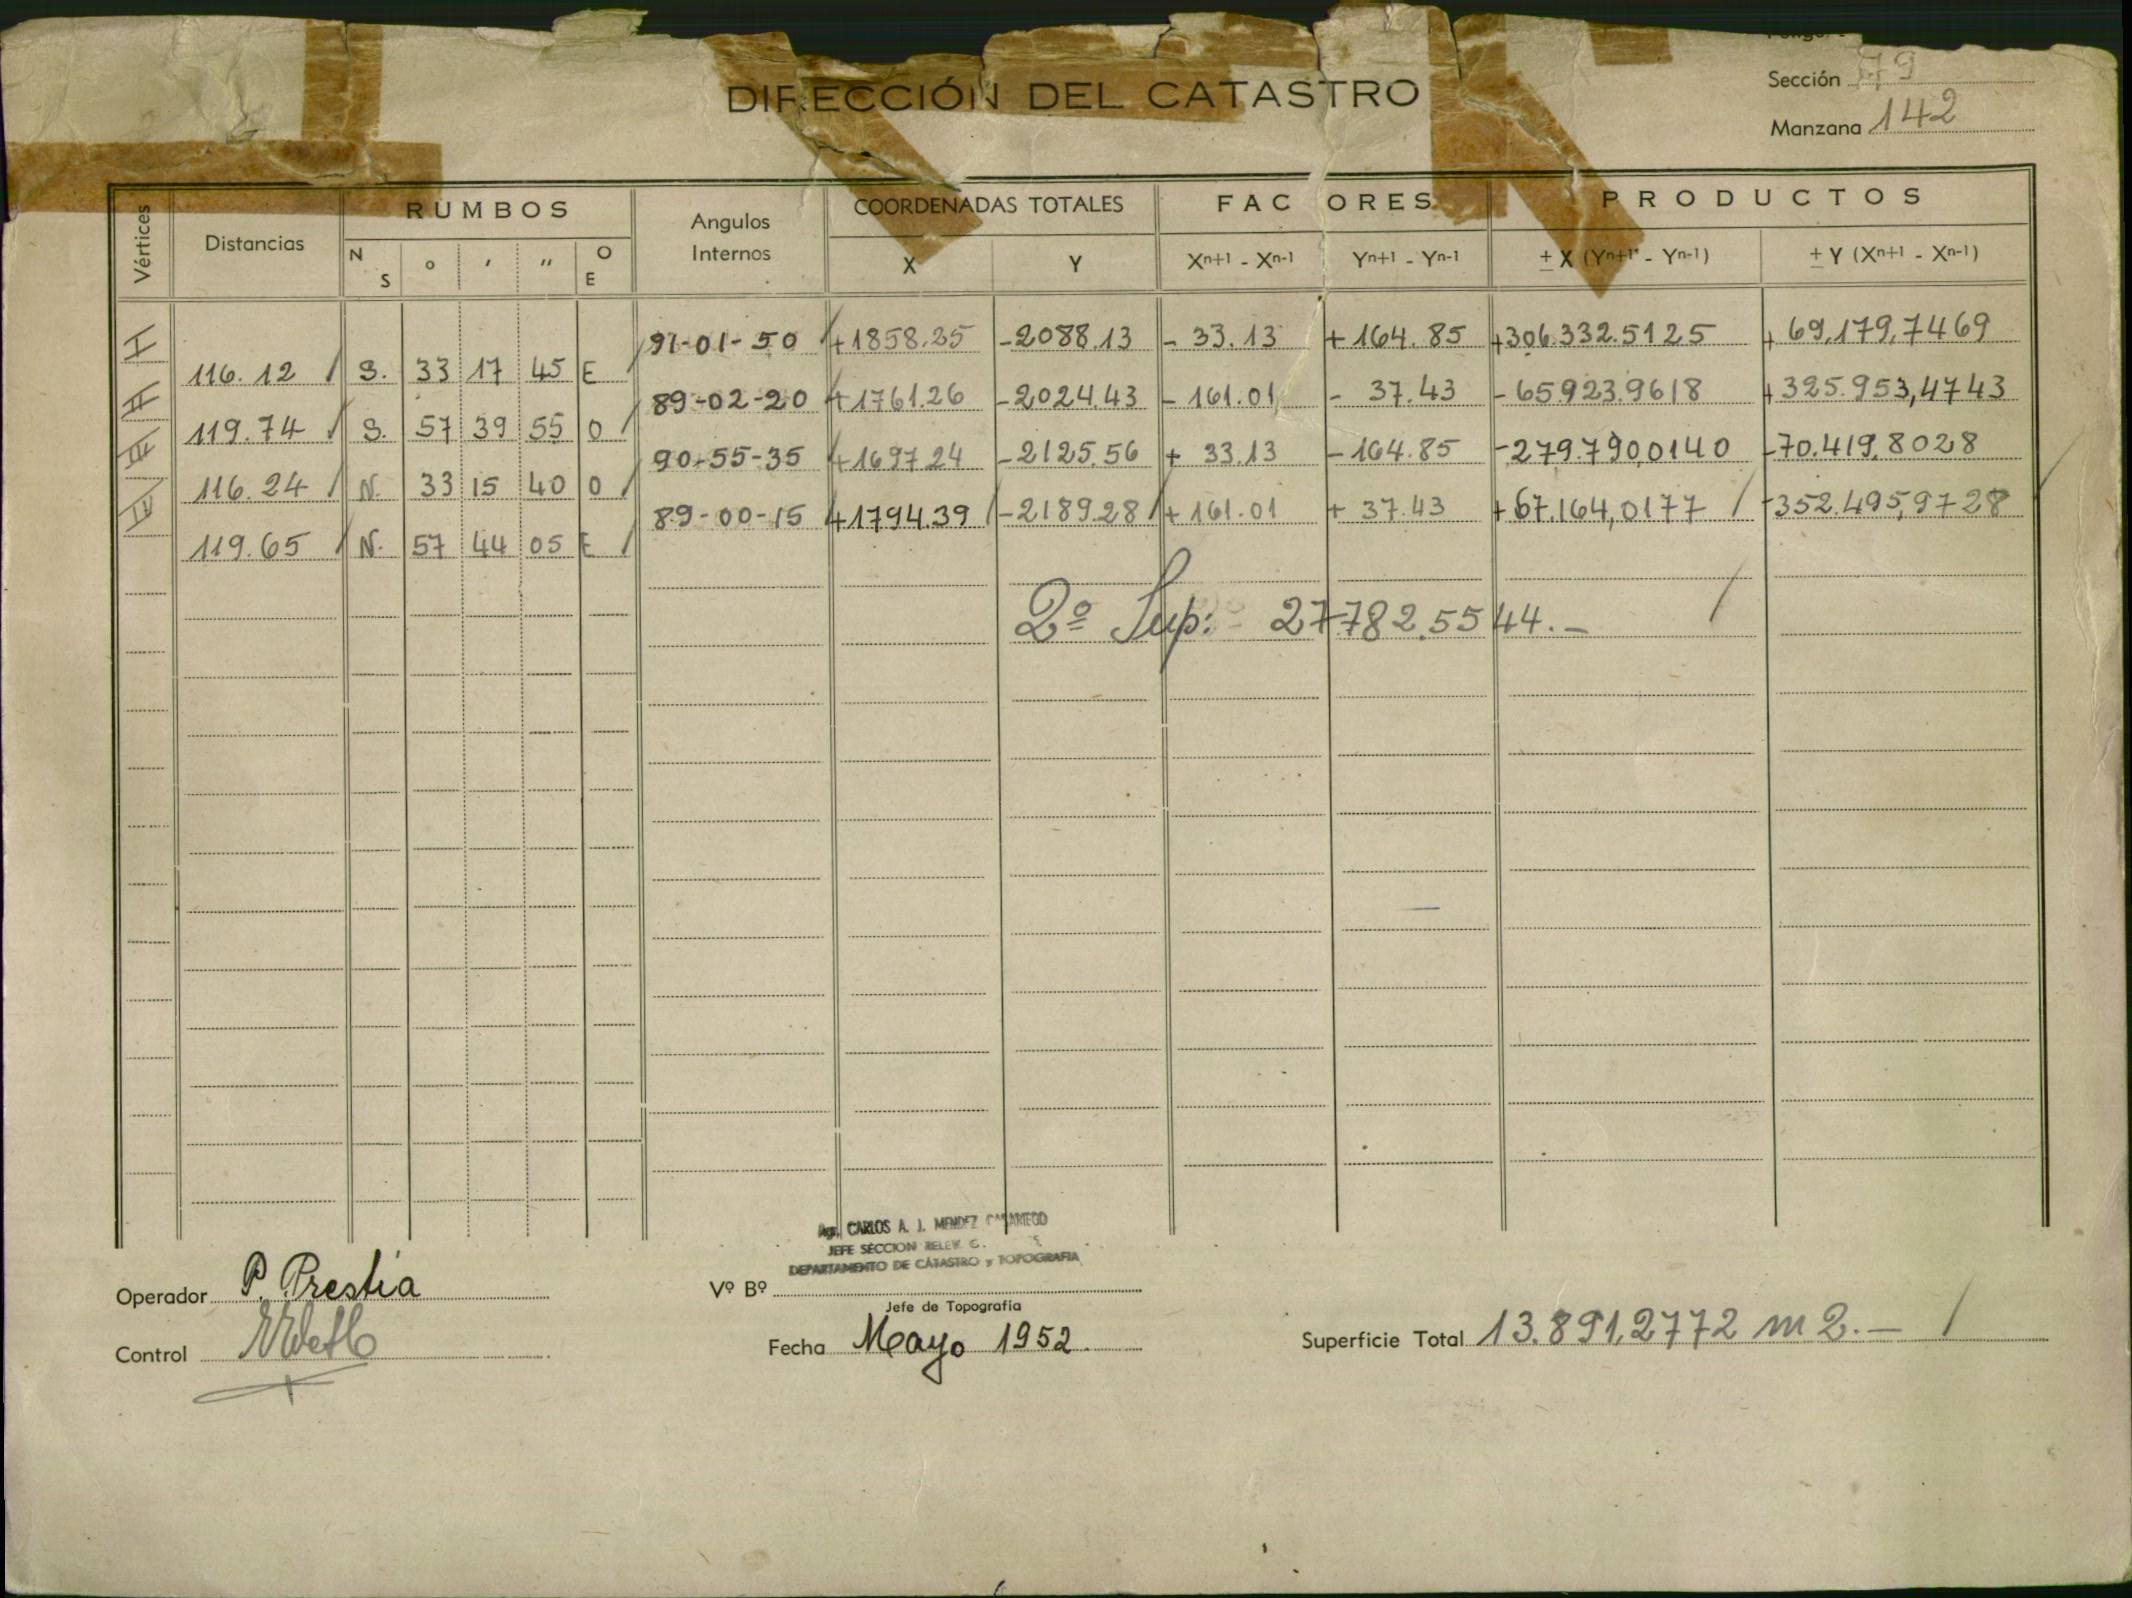 Sección 79
DIRECCIÓN DEL CATASTRO
Manzana 142
Vértices Distancias RUMBOS Angulos Internos COORDENADAS TOTALES FAC ORES PRODUCTOS
N S ° ′ ″ O E X Y Xn+1 - Xn-1 Yn+1 - Yn-1 ± X (Yn+1 - Yn-1) ± Y (Xn+1 - Xn-1)
I 91-01-50 +1858.25 -2088.13 - 33.13 + 164.85 +306.332.5125 + 69,179,7469
116.12 S. 33 17 45 E
II 89-02-20 +1761.26 -2024.43 - 161.01 - 37.43 - 65923.9618 +325.953,4743
119.74 S. 57 39 55 O
III 90-55-35 +1697.24 -2125.56 + 33.13 - 164.85 -279.790,0140 -70.419,8028
116.24 N. 33 15 40 O
IV 89-00-15 +1794.39 -2189.28 + 161.01 + 37.43 +67.164,0177 -352.495,9728
119.65 N. 57 44 05 E
2º Sup: 27782.5544.-
Agr. CARLOS A. J. MENDEZ CASARIEGO
JEFE SECCION RELEV.
DEPARTAMENTO DE CATASTRO y TOPOGRAFIA
Operador P. Prestia Vº Bº
Jefe de Topografía
Control Fecha Mayo 1952. Superficie Total 13.891,2772 m2.-